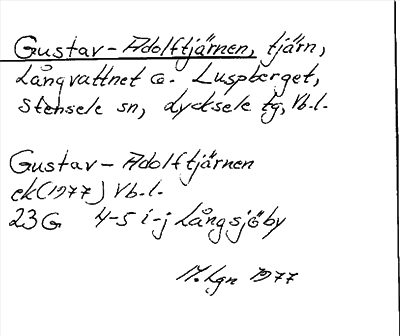 Gustav-Adolftjärnen, tjärn,
Långvattnet o. Luspberget,
Stensele sn, Lycksele tg, Vb.l.
Gustav-Adolftjärnen
ek (1977) Vb.l.
23G 4-5 i-j Långsjöby
M.Lgn 1977